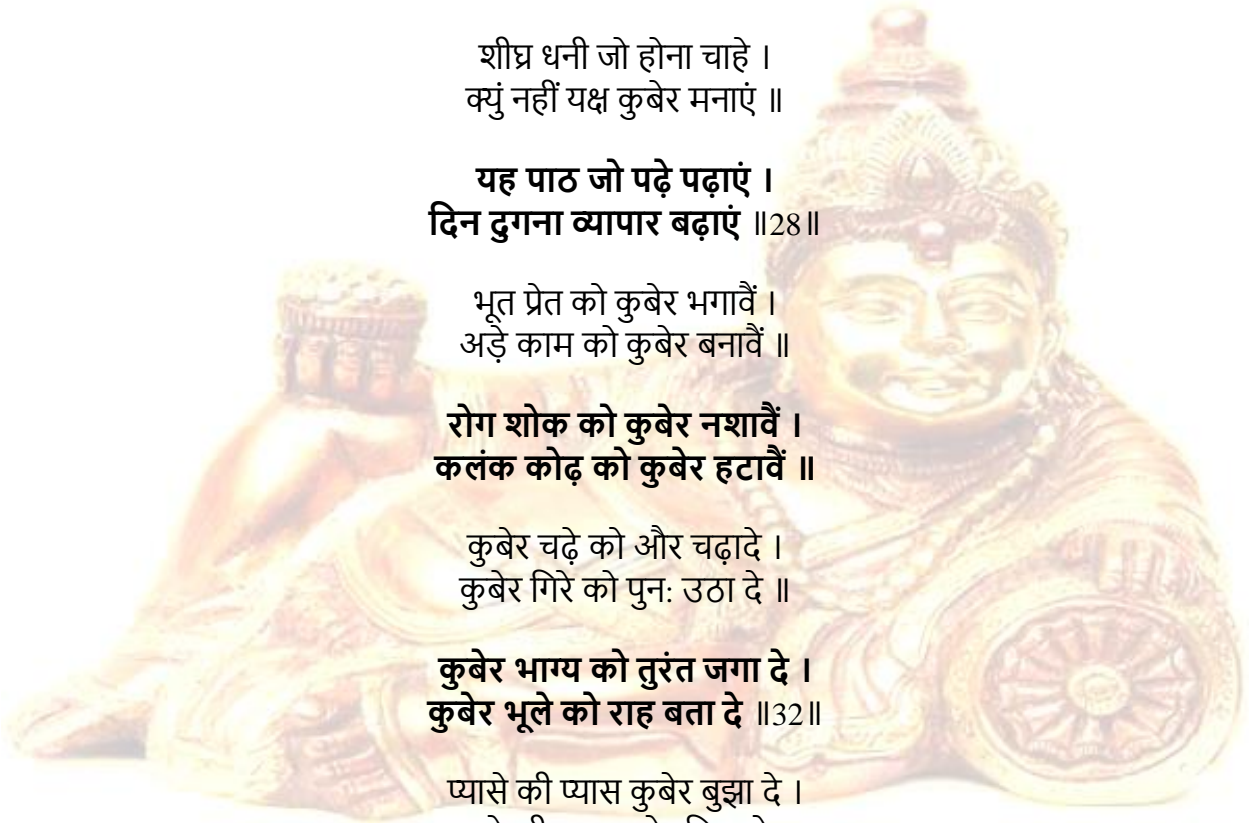 शीघ्र धनी जो होना चाहे ।
क्युं नहीं यक्ष कुबेर मनाएं ॥
यह पाठ जो पढ़े पढ़ाएं ।
दिन दुगना व्यापार बढ़ाएं ॥28॥
भूत प्रेत को कुबेर भगावैं ।
अड़े काम को कुबेर बनावैं ॥
रोग शोक को कुबेर नशावैं ।
कलंक कोढ़ को कुबेर हटावैं ॥
कुबेर चढ़े को और चढ़ादे ।
कुबेर गिरे को पुन: उठा दे ॥
कुबेर भाग्य को तुरंत जगा दे ।
कुबेर भूले को राह बता दे ॥32॥
प्यासे की प्यास कुबेर बुझा दे ।